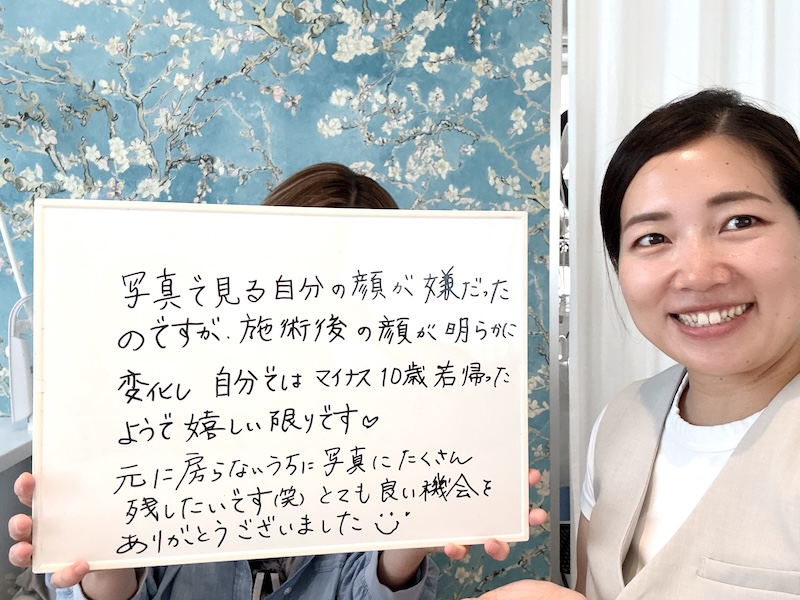 写真で見る自分の顔が嫌だった
のですが、施術後の顔が明らかに
変化し 自分では マイナス10歳若帰った
ようで嬉しい限りです♡
元に戻らないうちに写真にたくさん
残したいです(笑) とても良い機会を
ありがとうございました